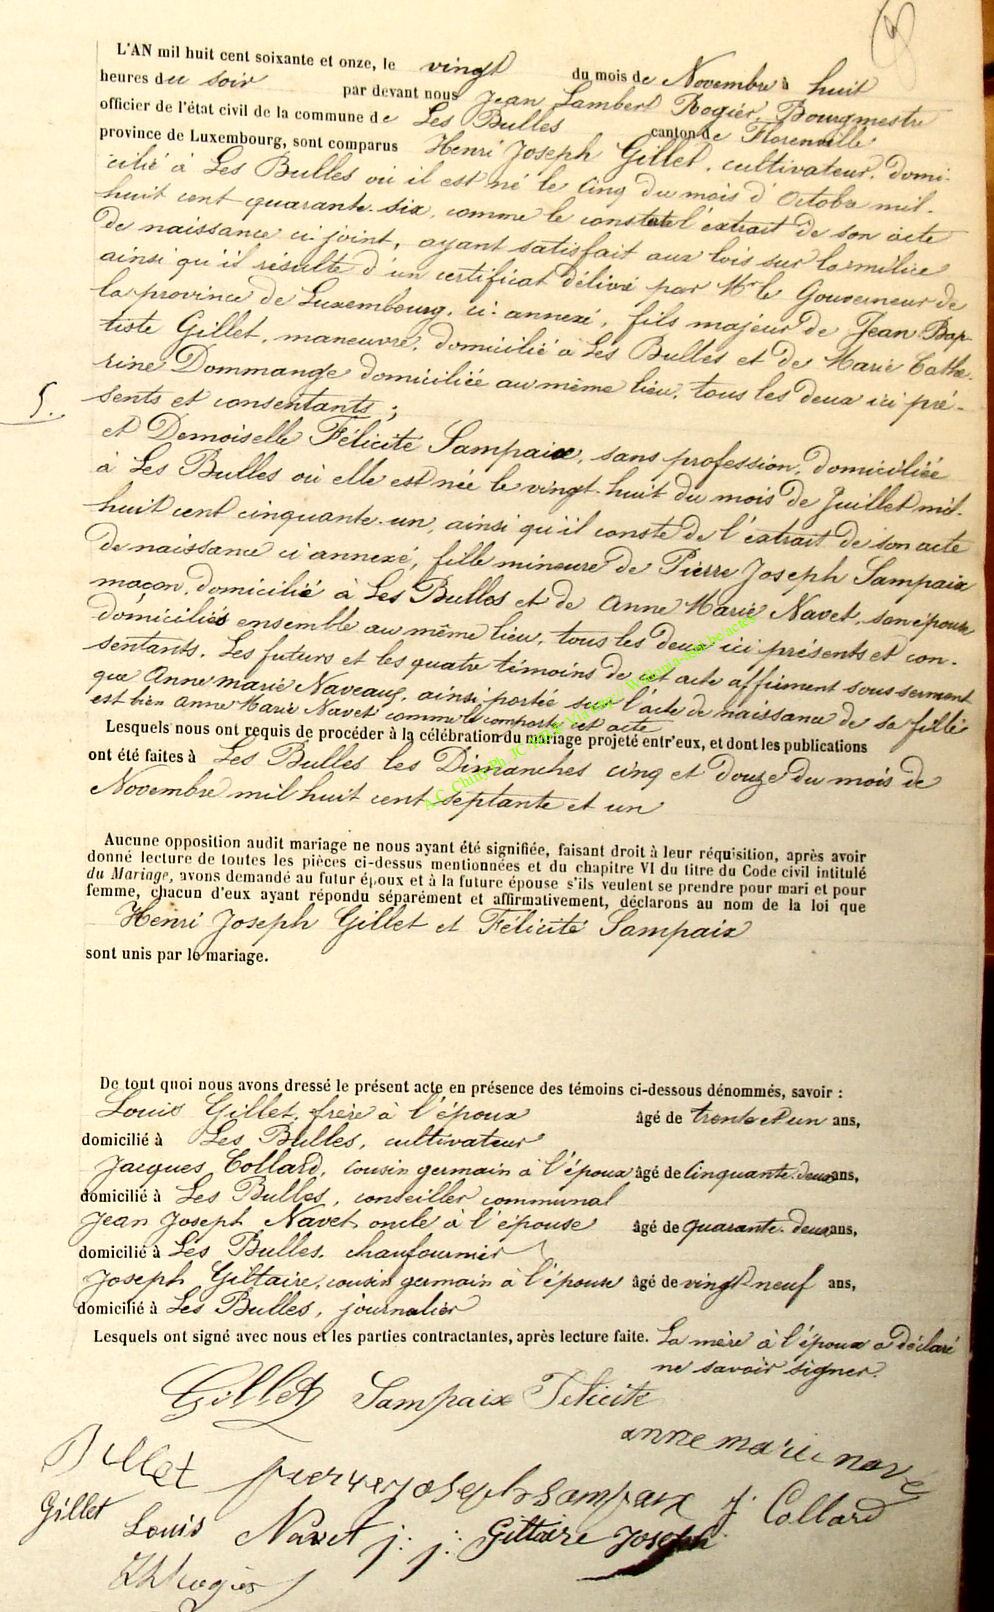 L'AN mil huit cent soixante et onze, le vingt du mois de Novembre à huit
heures du soir par devant nous Jean Lambert Rogier, Bourgmestre
officier de l'état civil de la commune de Les Bulles canton de Florenville
province de Luxembourg, sont comparus Henri Joseph Gillet, cultivateur, domi-
cilié à Les Bulles où il est né le cinq du mois d'Octobre mil-
huit cent quarante-six, comme le constate l'extrait de son acte
de naissance ci-joint, ayant satisfait aux lois sur la milice
ainsi qu'il résulte d'un certificat délivré par Mr le Gouverneur de
la province de Luxembourg, ci-annexé, fils majeur de Jean Bap-
tiste Gillet, manœuvre, domicilié à Les Bulles et de Marie Cathe-
rine Dommange domiciliée au même lieu, tous les deux ici pré-
5.
sents et consentants ;
et Demoiselle Félicité Sampaix, sans profession, domiciliée
à Les Bulles où elle est née le vingt-huit du mois de Juillet mil-
huit cent cinquante-un, ainsi qu'il conste de l'extrait de son acte
de naissance ci annexé, fille mineure de Pierre Joseph Sampaix
maçon, domicilié à Les Bulles et de Anne Marie Navet, son épouse
domiciliés ensemble au même lieu, tous les deux ici présents et con-
sentants. Les futurs et les quatre témoins de cet acte affirment sous serment
que Anne marie Naveaux, ainsi portée sur l'acte de naissance de sa fille
est bien Anne Marie Navet comme le comporte cet acte
Lesquels nous ont requis de procéder à la célébration du mariage projeté entr'eux, et dont les publications
ont été faites à Les Bulles les Dimanches cinq et douze du mois de
Novembre mil huit cent septante et un
Aucune opposition audit mariage ne nous ayant été signifiée, faisant droit à leur réquisition, après avoir
donné lecture de toutes les pièces ci-dessus mentionnées et du chapitre VI du titre du Code civil intitulé
du Mariage, avons demandé au futur époux et à la future épouse s'ils veulent se prendre pour mari et pour
femme, chacun d'eux ayant répondu séparément et affirmativement, déclarons au nom de la loi que
Henri Joseph Gillet et Félicité Sampaix
sont unis par le mariage.
De tout quoi nous avons dressé le présent acte en présence des témoins ci-dessous dénommés, savoir :
Louis Gillet, frère à l'époux âgé de trente et un ans,
domicilié à Les Bulles, cultivateur
Jacques Collard, cousin germain à l'époux âgé de cinquante-deux ans,
domicilié à Les Bulles, conseiller communal
Jean Joseph Navet, oncle à l'épouse âgé de quarante-deux ans,
domicilié à Les Bulles, chaufournier
Joseph Giltaire, cousin germain à l'épouse âgé de vingt neuf ans,
domicilié à Les Bulles, journalier
Lesquels ont signé avec nous et les parties contractantes, après lecture faite. La mère à l'époux a déclaré
ne savoir signer.
Gillet Sampaix Félicité
anne marie navé
pierre joseph sampaix J. Collard
Gillet Louis Navet j: j: Giltaire Joseph